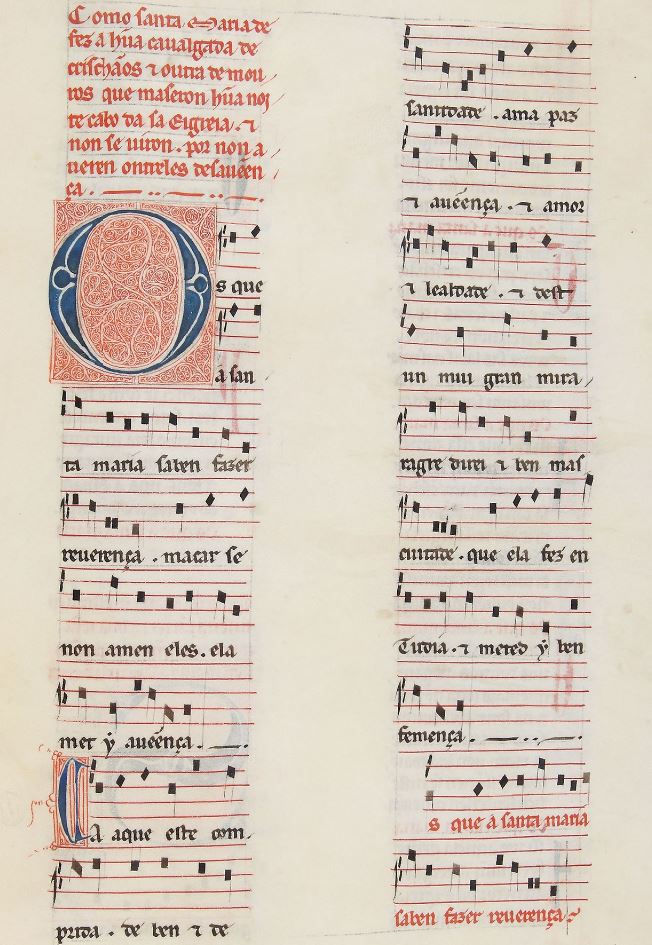 Como santa Maria de
fez a hũa caualgada de
crischãos ⁊ outra de mou
ros que maseron hũa noi
te cabo da sa Eigreia. ⁊
non se uiron. por non a
ueren ontreles desauẽen
ça.
Os que
a san
ta maria saben fazer
reuerença. macar se
non amen eles. ela
met ẏ auẽença.
Ca aque este com
prida. de ben ⁊ de
santidade. ama paz
⁊ auẽença. ⁊ amor
⁊ lealdade. ⁊ dest
un mui gran mira
ragre direi ⁊ ben mas
cuitade. que ela fez en
Tudia. ⁊ meted ẏ ben
femença.
s que a santa maria
saben fazer reuerença.